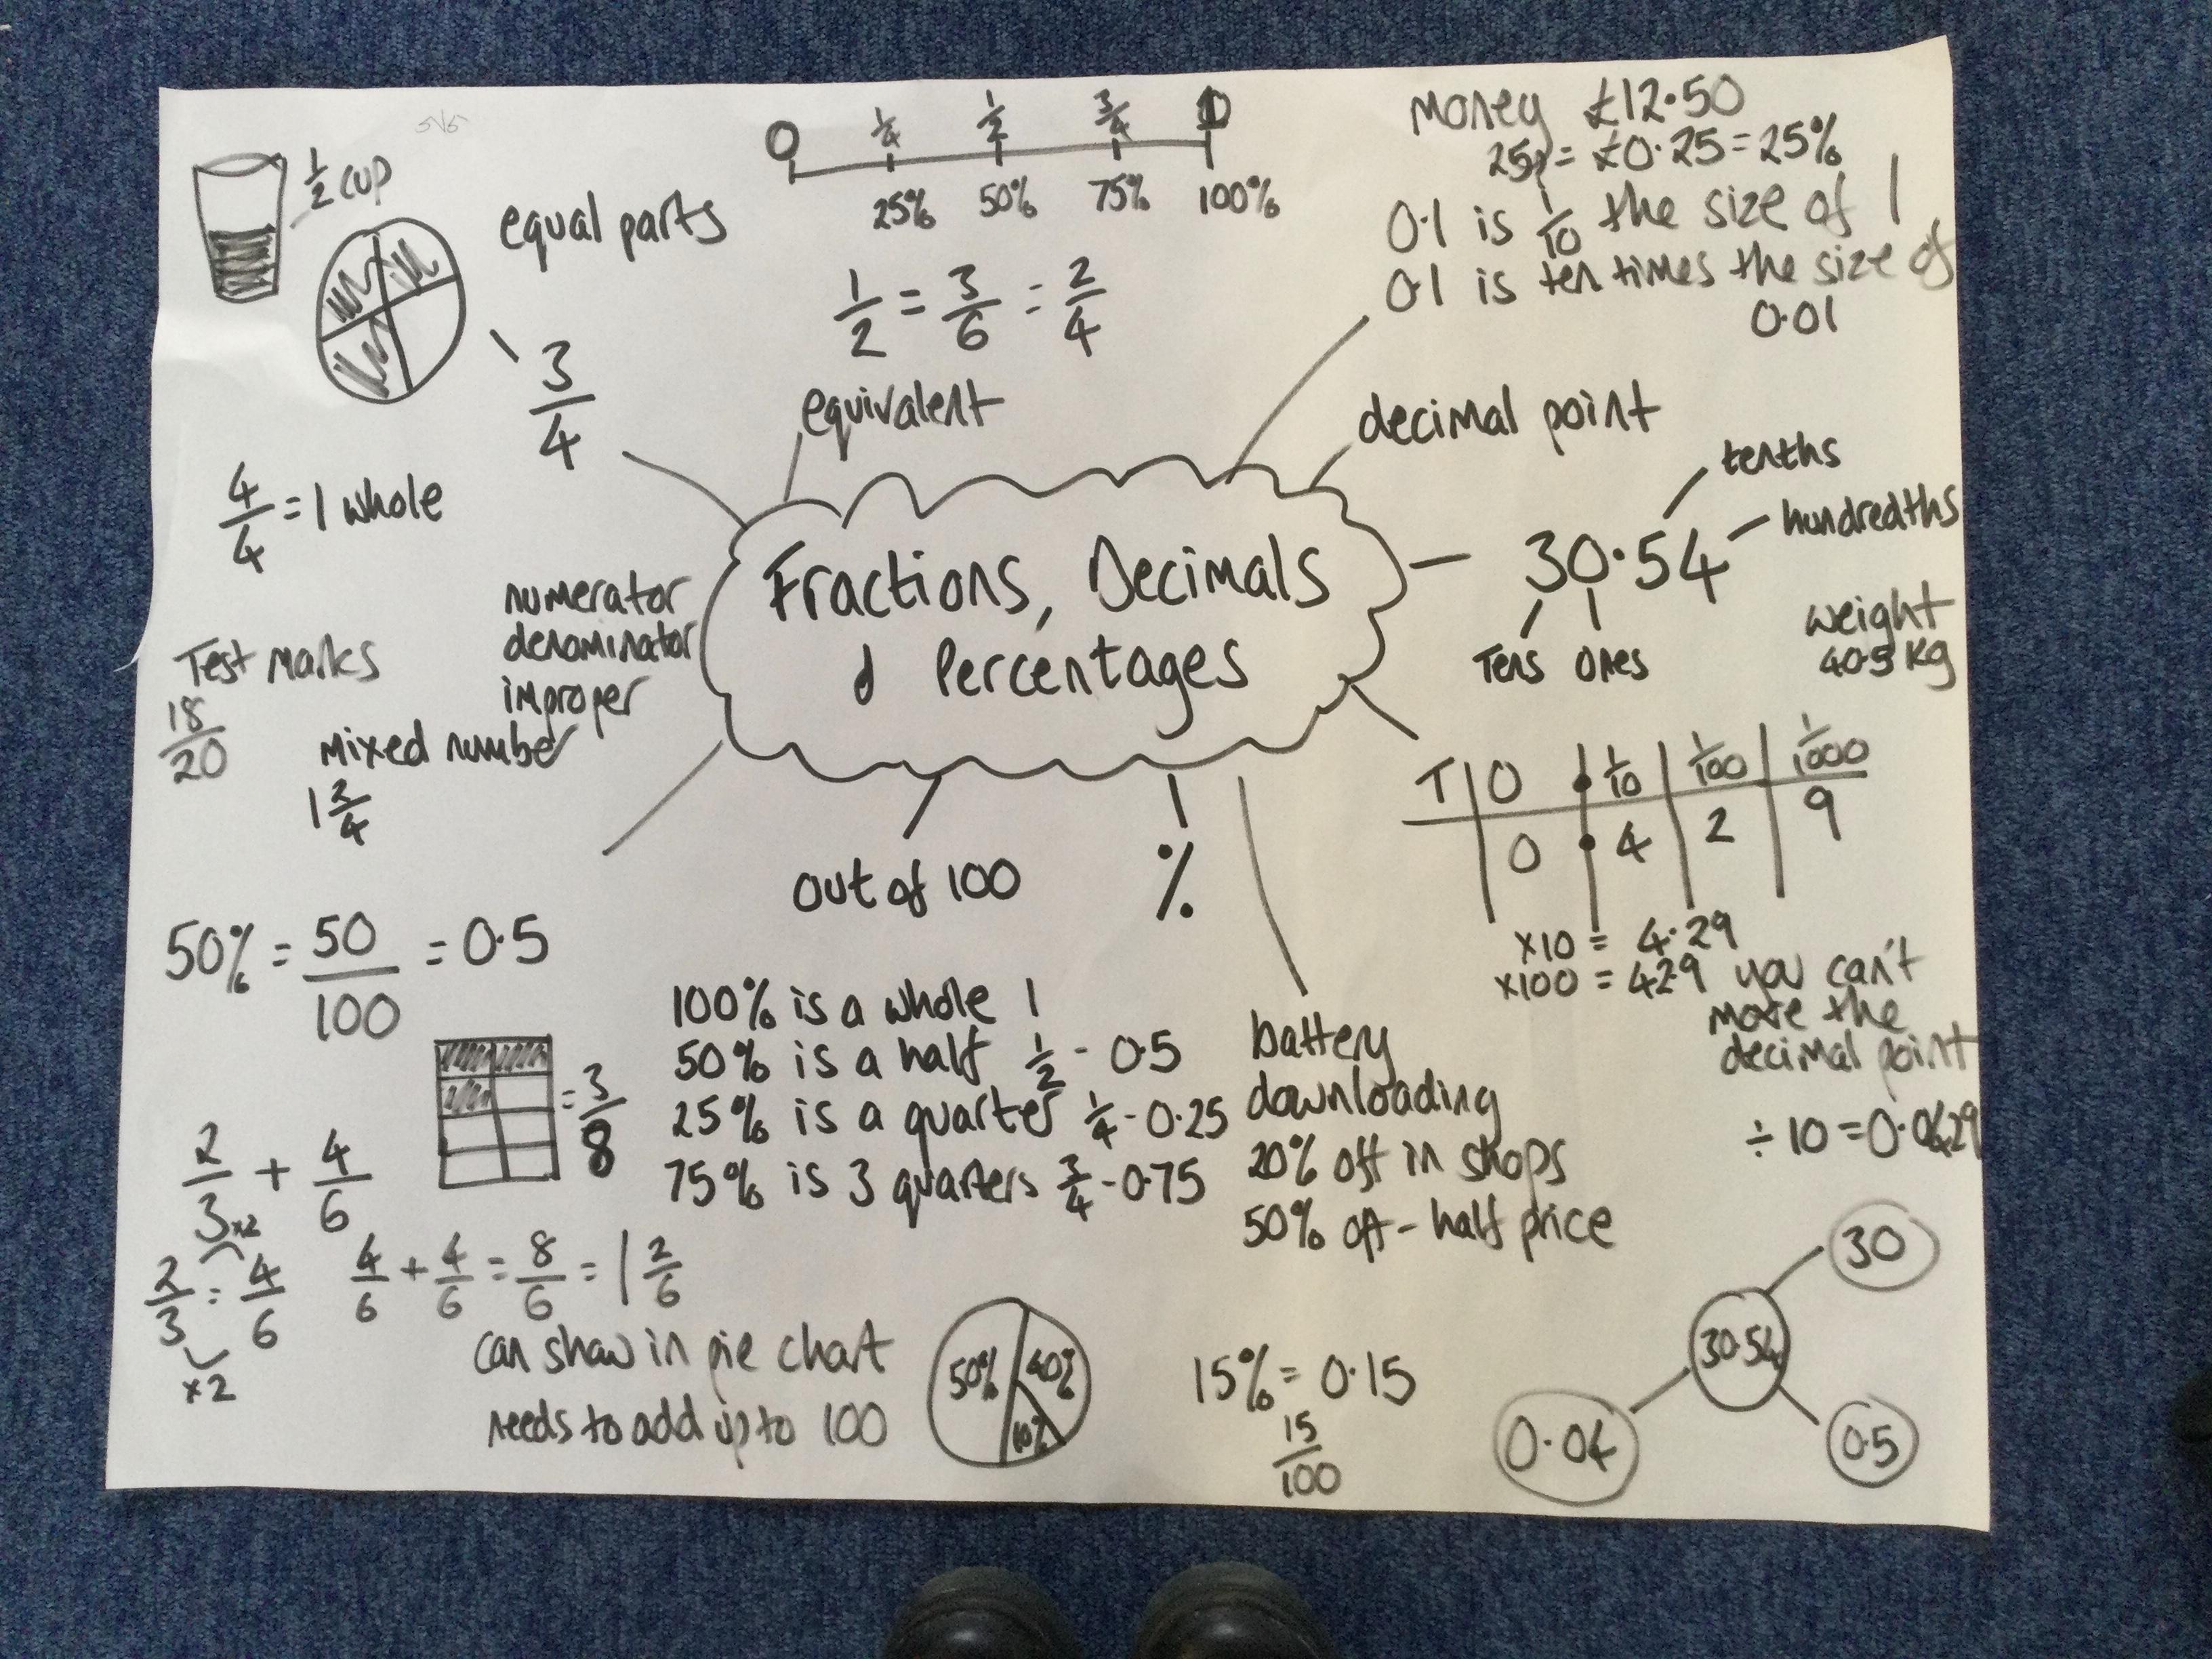 1/2 cup
equal parts
3/4
4/4 = 1 whole
0 1/4 1/2 3/4 1
25% 50% 75% 100%
1/2 = 3/6 = 2/4
equivalent
Money £12.50
25p = £0.25 = 25%
0.1 is 1/10 the size of 1
0.1 is ten times the size of
0.01
decimal point
tenths
hundredths
30.54
Tens ones
weight
40.5 kg
Fractions, Decimals
& Percentages
numerator
denominator
improper
Mixed number
1 2/4
Test marks
18/20
T | O . 1/10 | 1/100 | 1/1000
0 . 4 | 2 | 9
x10 = 4.29
x100 = 42.9 you can't
move the
decimal point
÷ 10 = 0.0429
out of 100
%
50% = 50/100 = 0.5
= 3/8
100% is a whole 1
50% is a half 1/2 - 0.5
25% is a quarter 1/4 - 0.25
75% is 3 quarters 3/4 - 0.75
battery
downloading
20% off in shops
50% off - half price
2/3 + 4/6
x2
2/3 = 4/6
x2
4/6 + 4/6 = 8/6 = 1 2/6
can show in pie chart
needs to add up to 100
50% 40%
10%
15% = 0.15
15/100
30
30.54
0.04
0.5